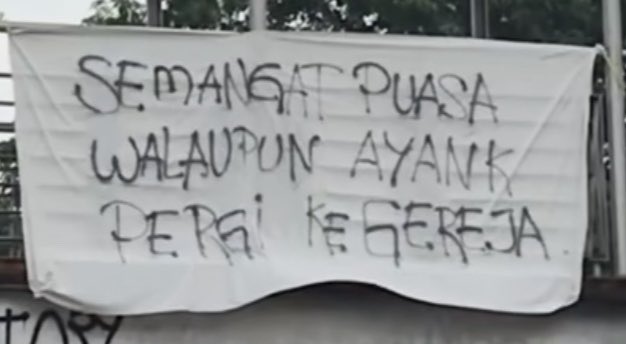 SEMANGAT PUASA
WALAUPUN AYANK
PERGi KE GEREJA.